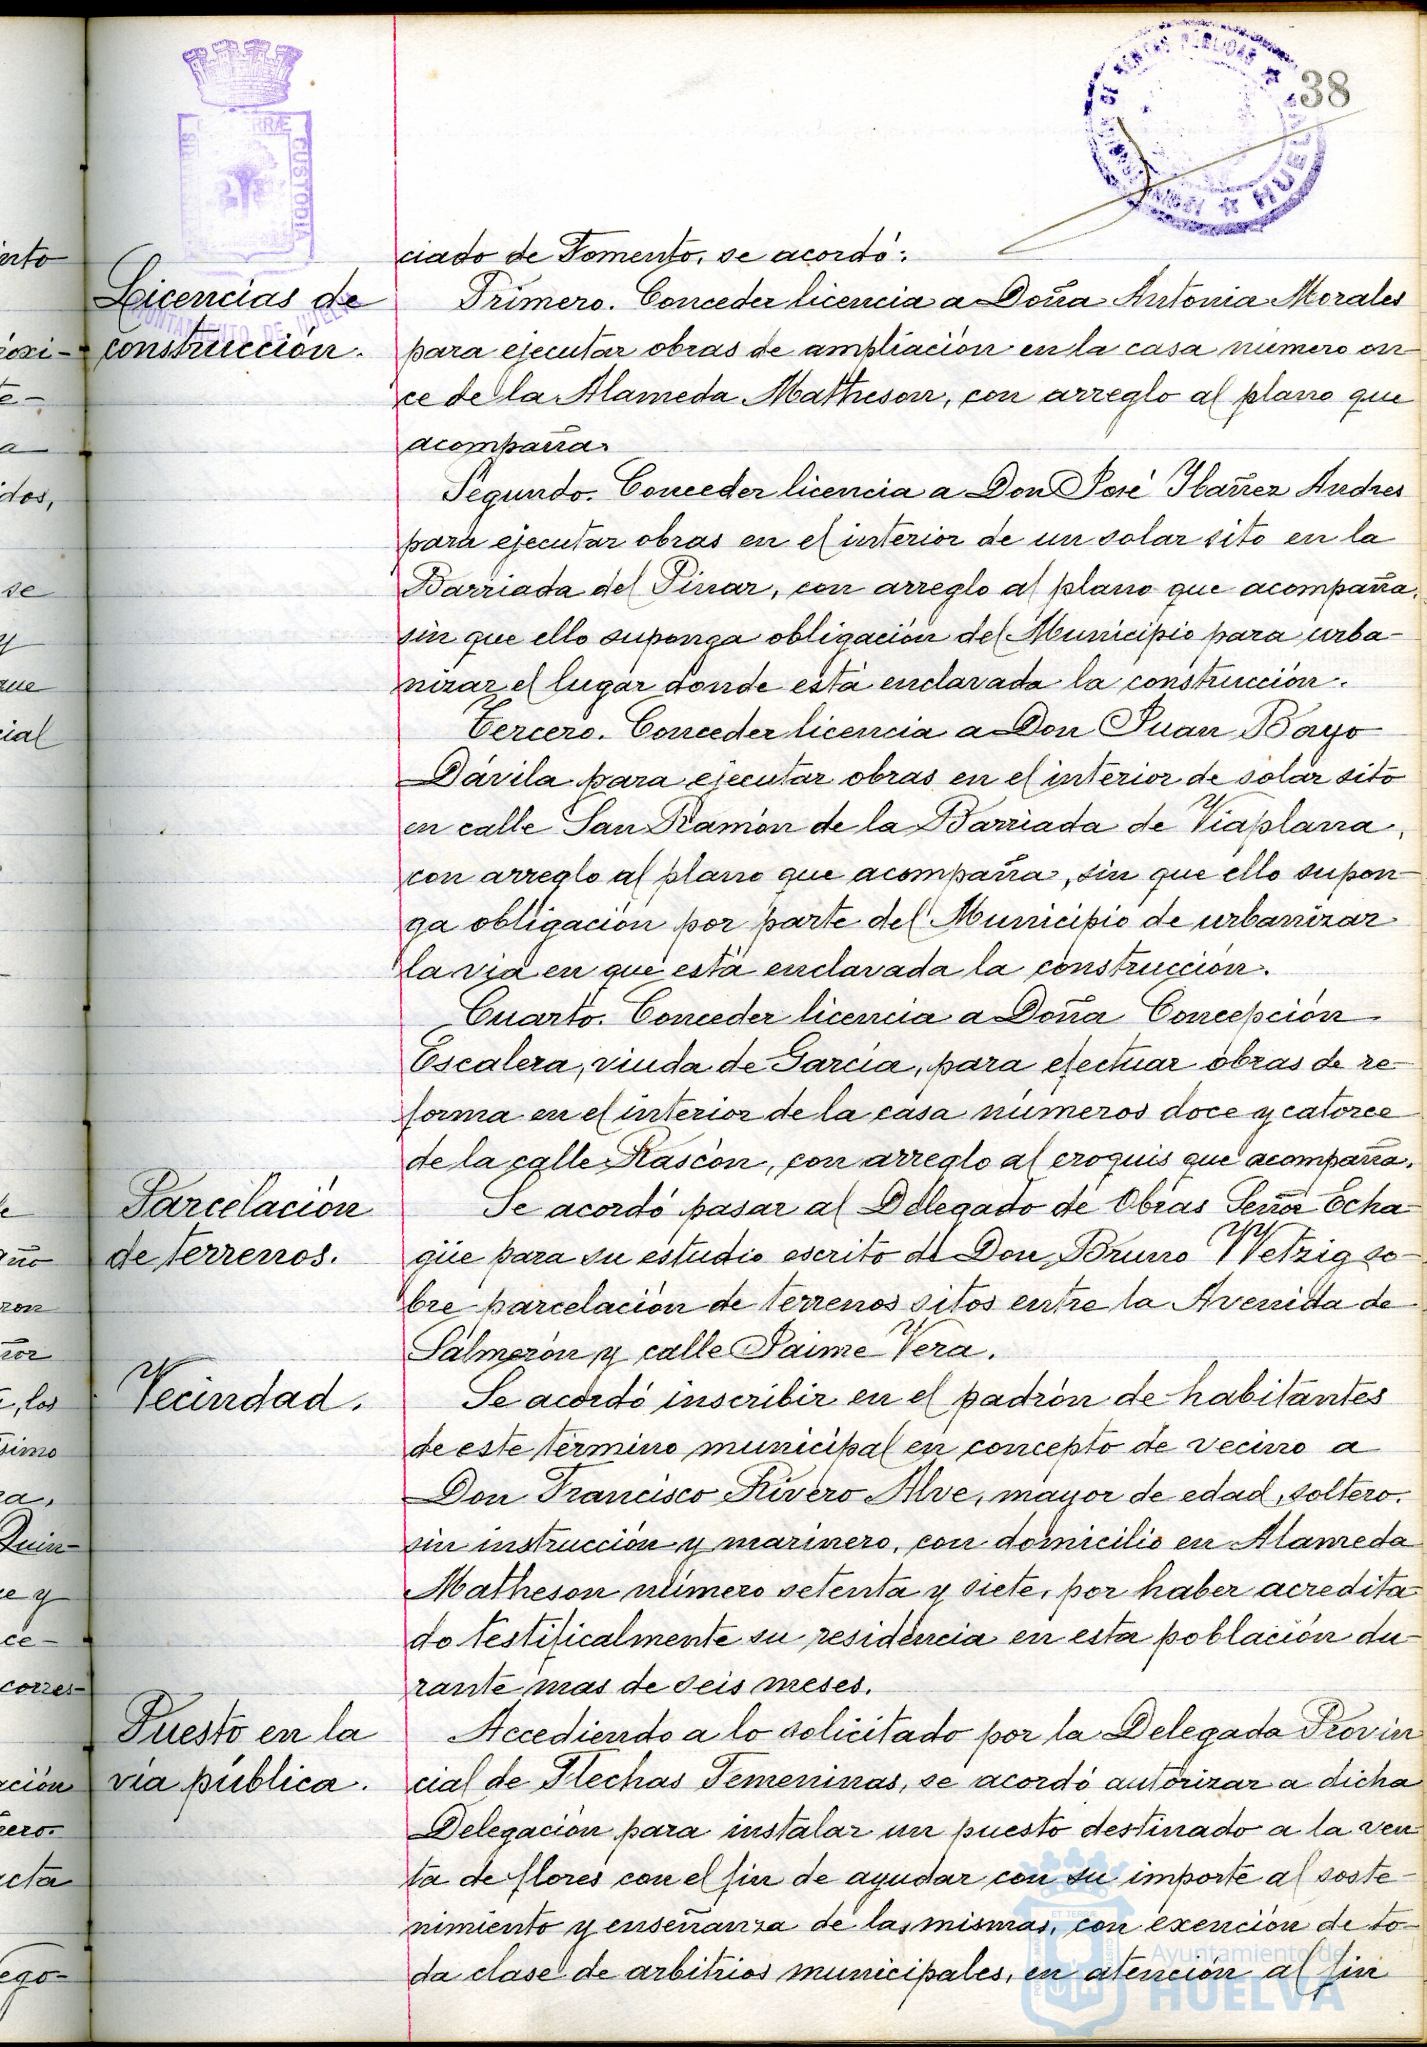 38
ciado de Fomento, se acordó:
Licencias de
construcción.
Primero. Conceder licencia a Doña Antonia Morales
para ejecutar obras de ampliación en la casa número on-
ce de la Alameda Matheson, con arreglo al plano que
acompaña.
Segundo. Conceder licencia a Don José Ibañez Andres
para ejecutar obras en el interior de un solar sito en la
Barriada del Pinar, con arreglo al plano que acompaña,
sin que ello suponga obligación del Municipio para urba-
nizar el lugar donde está enclavada la construcción.
Tercero. Conceder licencia a Don Juan Bayo
Dávila para ejecutar obras en el interior de solar sito
en calle San Ramón de la Barriada de Viaplana,
con arreglo al plano que acompaña, sin que ello supon-
ga obligación por parte del Municipio de urbanizar
la via en que está enclavada la construcción.
Cuarto. Conceder licencia a Doña Concepción
Escalera, viuda de García, para efectuar obras de re-
forma en el interior de la casa números doce y catorce
de la calle Rascón, con arreglo al croquis que acompaña.
Parcelación
de terrenos.
Se acordó pasar al Delegado de Obras Señor Echa-
güe para su estudio escrito de Don Bruno Wetzig so-
bre parcelación de terrenos sitos entre la Avenida de
Salmerón y calle Jaime Vera.
Vecindad.
Se acordó inscribir en el padrón de habitantes
de este término municipal en concepto de vecino a
Don Francisco Rivero Alve, mayor de edad, soltero,
sin instrucción y marinero, con domicilio en Alameda
Matheson número setenta y siete, por haber acredita-
do testificalmente su residencia en esta población du-
rante mas de seis meses.
Puesto en la
via pública.
Accediendo a lo solicitado por la Delegada Provin
cial de Flechas Femeninas, se acordó autorizar a dicha
Delegación para instalar un puesto destinado a la ven
ta de flores con el fin de ayudar con su importe al soste-
nimiento y enseñanza de las mismas, con exención de to-
da clase de arbitrios municipales, en atención al fin
Ayuntamiento de
HUELVA